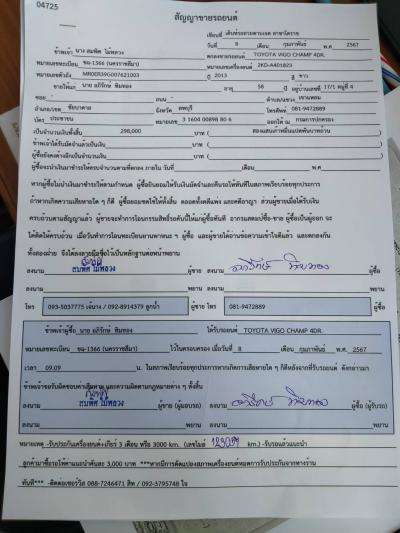 04725
สัญญาขายรถยนต์
เขียนที่ เต็นท์รถสวยตามเจต สาขาโคราช
วันที่ 8 เดือน กุมภาพันธ์ พ.ศ. 2567
ข้าพเจ้า นาง สมพิศ ไม้พลวง ตกลงขายรถยนต์ TOYOTA VIGO CHAMP 4DR.
หมายเลขทะเบียน ขฉ-1366 (นครราชสีมา) หมายเลขเครื่องยนต์ 2KD-A401823
หมายเลขตัวถัง MR0ER39G007621003 ปี 2013 สี ขาว
ขายให้แก่ นาย อภิรักษ์ พิมทอง อายุ 58 ปี อยู่บ้านเลขที่ 17/1 หมู่ที่ 4
ซอย - ถนน - ตำบล/แขวง เขาแหลม
อำเภอ/เขต ชัยบาดาล จังหวัด ลพบุรี โทรศัพท์ 081-9472889
บัตร ประชาชน หมายเลข 3 1604 00898 80 6 ออกให้ ณ กรมการปกครอง
เป็นจำนวนเงินทั้งสิ้น 298,000 บาท ( สองแสนเก้าหมื่นแปดพันบาทถ้วน
ข้าพเจ้าได้รับมัดจำแล้วเป็นเงิน บาท (
ผู้ซื้อยังคงค้างอีกเป็นจำนวนเงิน บาท (
ผู้ซื้อจะนำเงินมาชำระให้ครบจำนวนตามที่ตกลง ภายใน วันที่ เดือน พ.ศ.
หากผู้ซื้อไม่นำเงินมาชำระให้ตามกำหนด ผู้ซื้อยินยอมให้ริบเงินมัดจำและคืนรถให้ทันทีในสภาพเรียบร้อยทุกประการ
ถ้าหากเกิดความเสียหายใด ๆ ก็ดี ผู้ซื้อยอมชดใช้ให้ทั้งสิ้น ตลอดทั้งคดีแพ่ง และคดีอาญา ส่วนผู้ขายเมื่อได้รับเงิน
ครบถ้วนตามสัญญาแล้ว ผู้ขายจะทำการโอนกรรมสิทธิ์รถคันนี้ให้แก่ผู้ซื้อทันที อากรแสตมป์ซื้อ-ขาย ผู้ซื้อเป็นผู้ออก จะ
ได้คิดให้ครบถ้วน เมื่อวันที่ทำการโอนทะเบียนยานพาหนะ ฯ ผู้ซื้อ และผู้ขายได้อ่านข้อความเข้าใจดีแล้ว และตกลงกัน
ทั้งสองฝ่าย จึงได้ลงลายมือชื่อไว้เป็นหลักฐานต่อหน้าพยาน
ลงนาม สมพิศ ไม้พลวง ผู้ขาย ลงนาม ผู้ซื้อ
ลงนาม พยาน ลงนาม พยาน
โทร 093-5037775 เจ้นาง / 092-8914379 ลูกน้ำ ผู้ขาย โทร 081-9472889 ผู้ซื้อ
ข้าพเจ้าผู้ซื้อ นาย อภิรักษ์ พิมทอง ได้รับรถยนต์ TOYOTA VIGO CHAMP 4DR.
หมายเลขทะเบียน ขฉ-1366 (นครราชสีมา) ไว้ในครอบครอง เมื่อวันที่ 8 เดือน กุมภาพันธ์ พ.ศ. 2567
เวลา 09.09 น. ในสภาพเรียบร้อยทุกประการหากเกิดการเสียหายใด ๆ ก็ดีหลังจากที่รับรถยนต์ ดังกล่าวมา
ข้าพเจ้าขอรับผิดชอบค่าเสียหาย และความผิดตามกฎหมายต่าง ๆ ทั้งสิ้น
ลงนาม สมพิศ ไม้พลวง ผู้ขาย (ผู้มอบรถ) ลงนาม ผู้ซื้อ (ผู้รับรถ)
ลงนาม พยาน ลงนาม พยาน
หมายเหตุ -รับประกันเครื่องยนต์+เกียร์ 3 เดือน หรือ 3000 km. (เลขไมล์ km.) -รับรถแล้วแนะนำ
ลูกค้ามาซื้อรถให้ค่าแนะนำคันละ 3,000 บาท ***หากมีการดัดแปลงสภาพเครื่องยนต์หมดการรับประกันจากทางร้าน
ทันที*** -ติดต่อเซอร์วิส 088-7246471 สิท / 092-3795748 ใจ